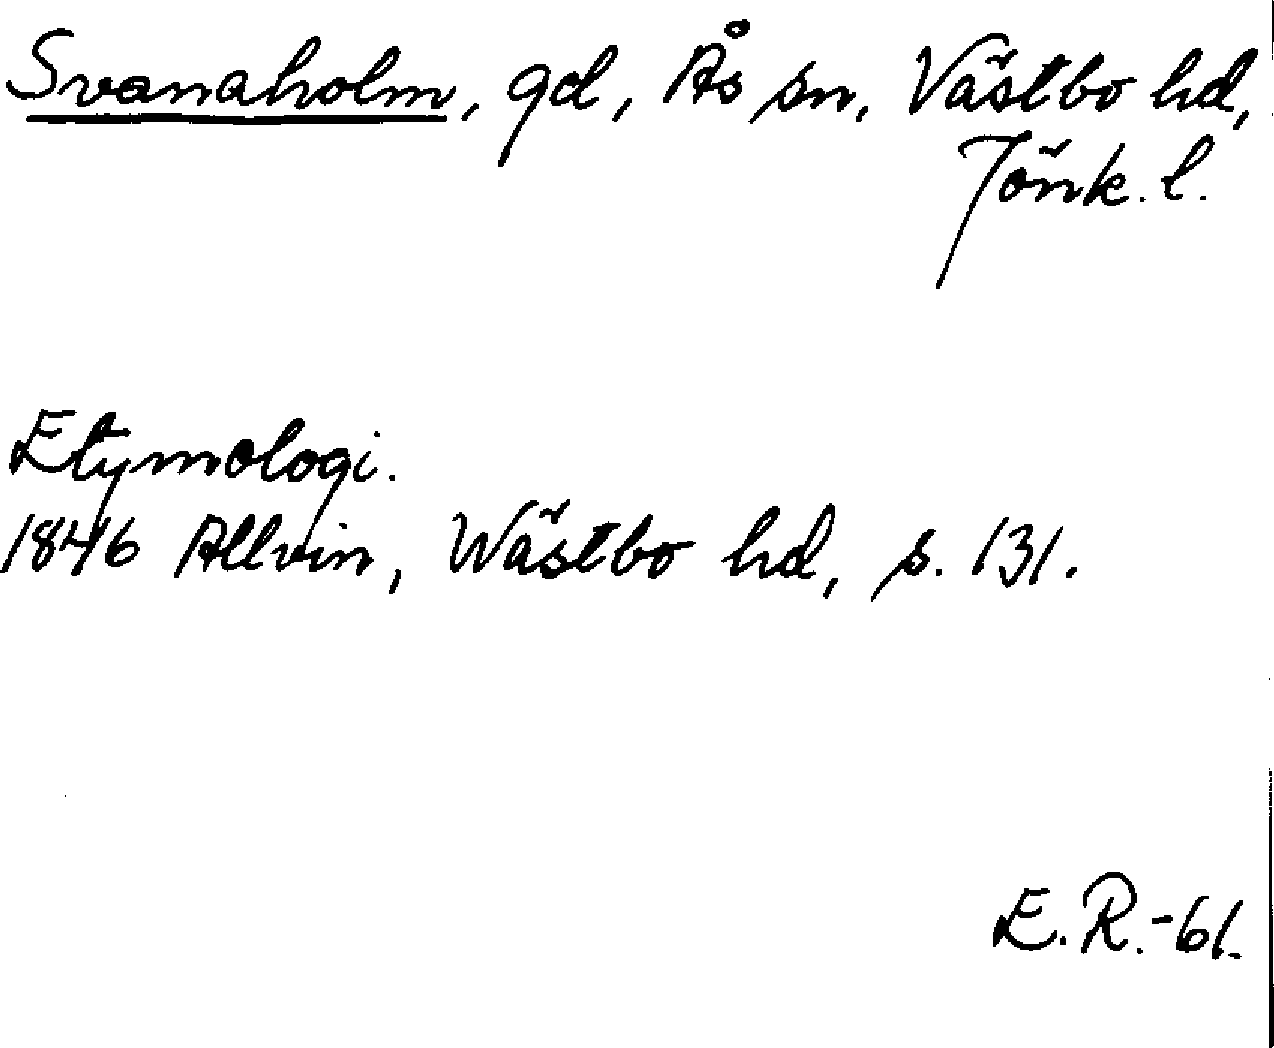 Svanaholm, gd, Ås sn, Västbo hd,
Jönk. l.
Etymologi.
1846 Allvin, Wästbo hd, s. 131.
E. R. -61.